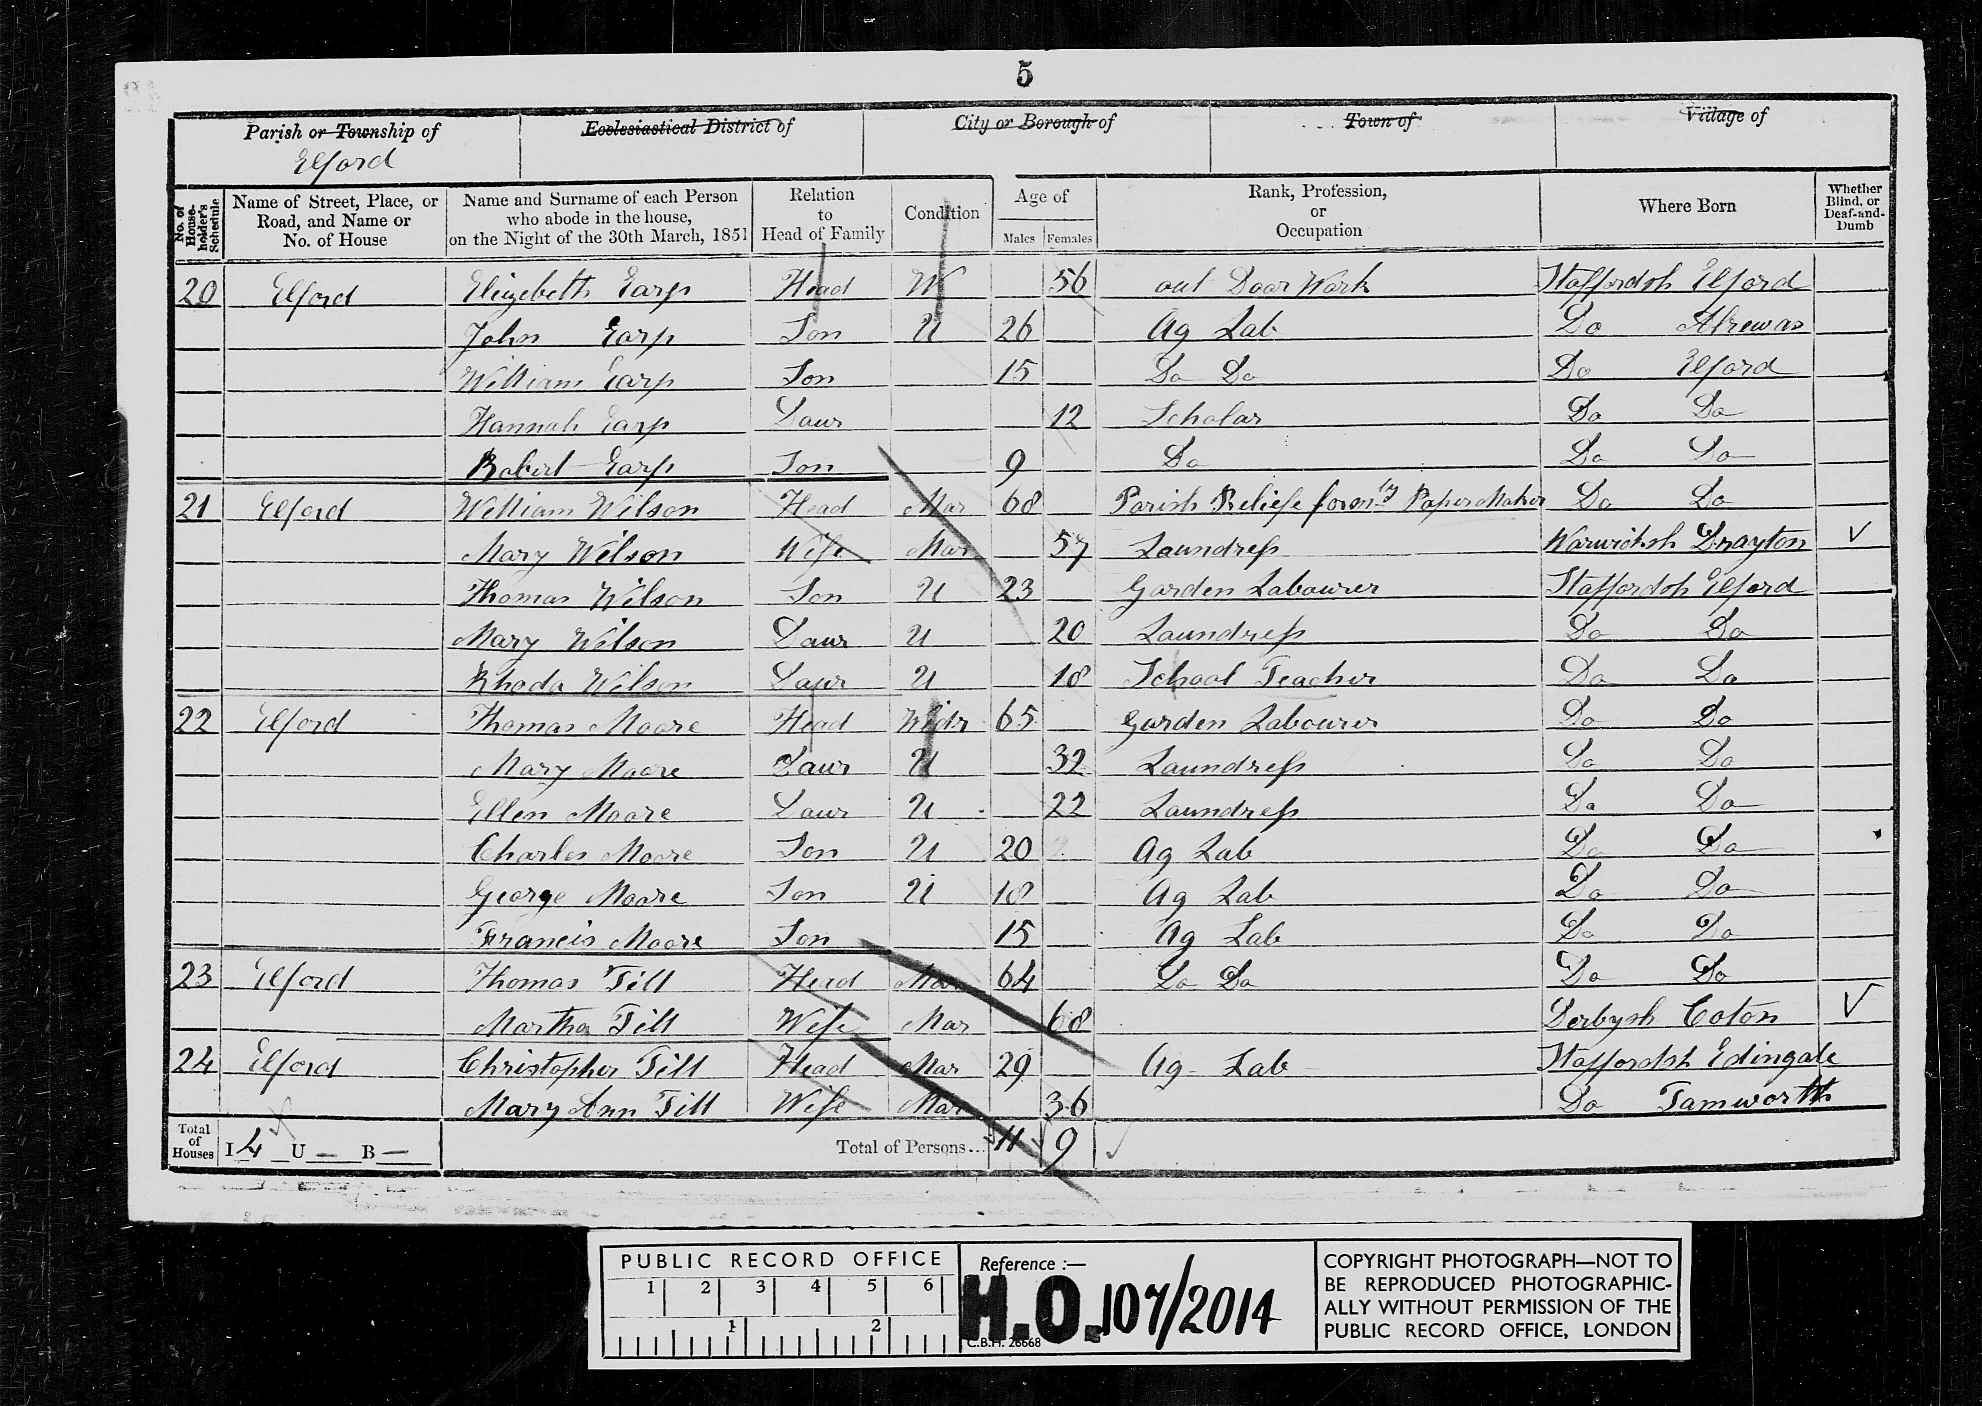 5
Parish or Township of Ecclesiastical District of City or Borough of Town of Village of
Elford
No. of House-holder's Schedule Name of Street, Place, or Road, and Name or No. of House Name and Surname of each Person who abode in the house, on the Night of the 30th March, 1851 Relation to Head of Family Condition Age of Males Females Rank, Profession, or Occupation Where Born Whether Blind, or Deaf-and-Dumb
20 Elford Elizabeth Earp Head W 56 out Door Work Staffordsh Elford
John Earp Son U 26 Ag Lab Do Alrewas
William Earp Son 15 Do Do Do Elford
Hannah Earp Daur 12 Scholar Do Do
Robert Earp Son 9 Do Do Do
21 Elford William Wilson Head Mar 68 Parish Relief formly Paper Maker Do Do
Mary Wilson Wife Mar 57 Laundress Warwicksh Drayton
Thomas Wilson Son U 23 Garden Labourer Staffordsh Elford
Mary Wilson Daur U 20 Laundress Do Do
Rhoda Wilson Daur U 18 School Teacher Do Do
22 Elford Thomas Moore Head Widr 65 Garden Labourer Do Do
Mary Moore Daur U 32 Laundress Do Do
Ellen Moore Daur U 22 Laundress Do Do
Charles Moore Son U 20 Ag Lab Do Do
George Moore Son U 18 Ag Lab Do Do
Francis Moore Son 15 Ag Lab Do Do
23 Elford Thomas Till Head Mar 64 Do Do Do Do
Martha Till Wife Mar 68 Derbysh Coton
24 Elford Christopher Till Head Mar 29 Ag Lab Staffordsh Edingale
Mary Ann Till Wife Mar 36 Do Tamworth
Total of Houses I 4 U — B — Total of Persons... 11 9
PUBLIC RECORD OFFICE
1 2 3 4 5 6
1 2
Reference :—
H.O. 107/2014
C.B.H. 26668
COPYRIGHT PHOTOGRAPH—NOT TO
BE REPRODUCED PHOTOGRAPHIC-
ALLY WITHOUT PERMISSION OF THE
PUBLIC RECORD OFFICE, LONDON